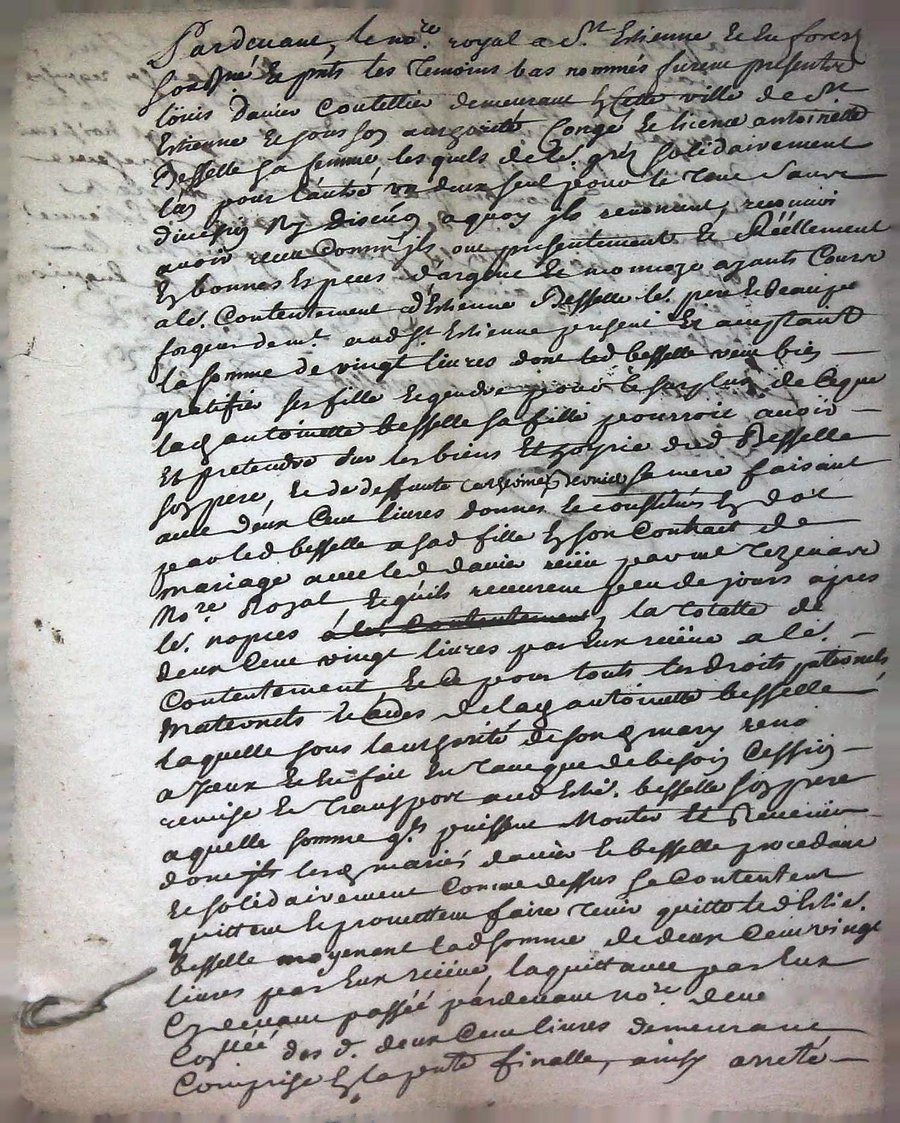 Pardevant, le no.re royal a St Estienne et en forest
soussigné et pnts les temoins bas nommés furent presentes
loüis davier coutellier demeurant en cette ville de St
Estienne et sous son authorité congé et licence antoinette
Besselle sa femme lesquels de lr. gré solidairement
lun pour l'autre un deux seul pour le tout sans
division ny discution aquoy ils renoncent, reconnu
avoir receu comme ils ont presentement et Réellement
En bonnes Especes dargent et monnoye ayants cours
a lr. contentement d'Estienne Besselle lr. pere et beaupere
forgeur demt. aud St. Estienne present Et acceptant
la somme de vingt livres dont led besselle veut bien
gratifier ses fille et gendre pour le surplus de ce que
lad antoinette besselle sa fille pourroit avoir
Et pretendre sur les biens Et hoyrie dud Besselle
son pere, et de deffunte sa mere faisant
avec deux cent livres donnés et constitués en dot
par led besselle a sad fille en son contract de
mariage avec led davier reçu par me tezenare
no.re Royal et qu'ils receurent peu de jours apres
lr. nopces à lr. contentement, la totalle de
deux cent vingt livres par Eux reçüe a lr.
contentement et ce pour touts les droits paternels
maternels et autres de lad antoinette besselle
laquelle sous lauthorité de sond mary reno
a yceux et En fait En tant que de besoin cession
remise et transport aud Esti. besselle son pere
aquelle somme qls puissent monter et Revenir
dont ils lesd mariés davier et besselle procedant
et solidairement comme dessus se contentent
quittent et promettent faire tenir quitte led Estie.
besselle moyenant lad somme de deux cent vingt
livres par Eux reçüe, la quittance par Eux
Cy devant passée pardevant no.re
des d. deux cent livres demeurant
comprise En la pnte finalle, ainsy arreté